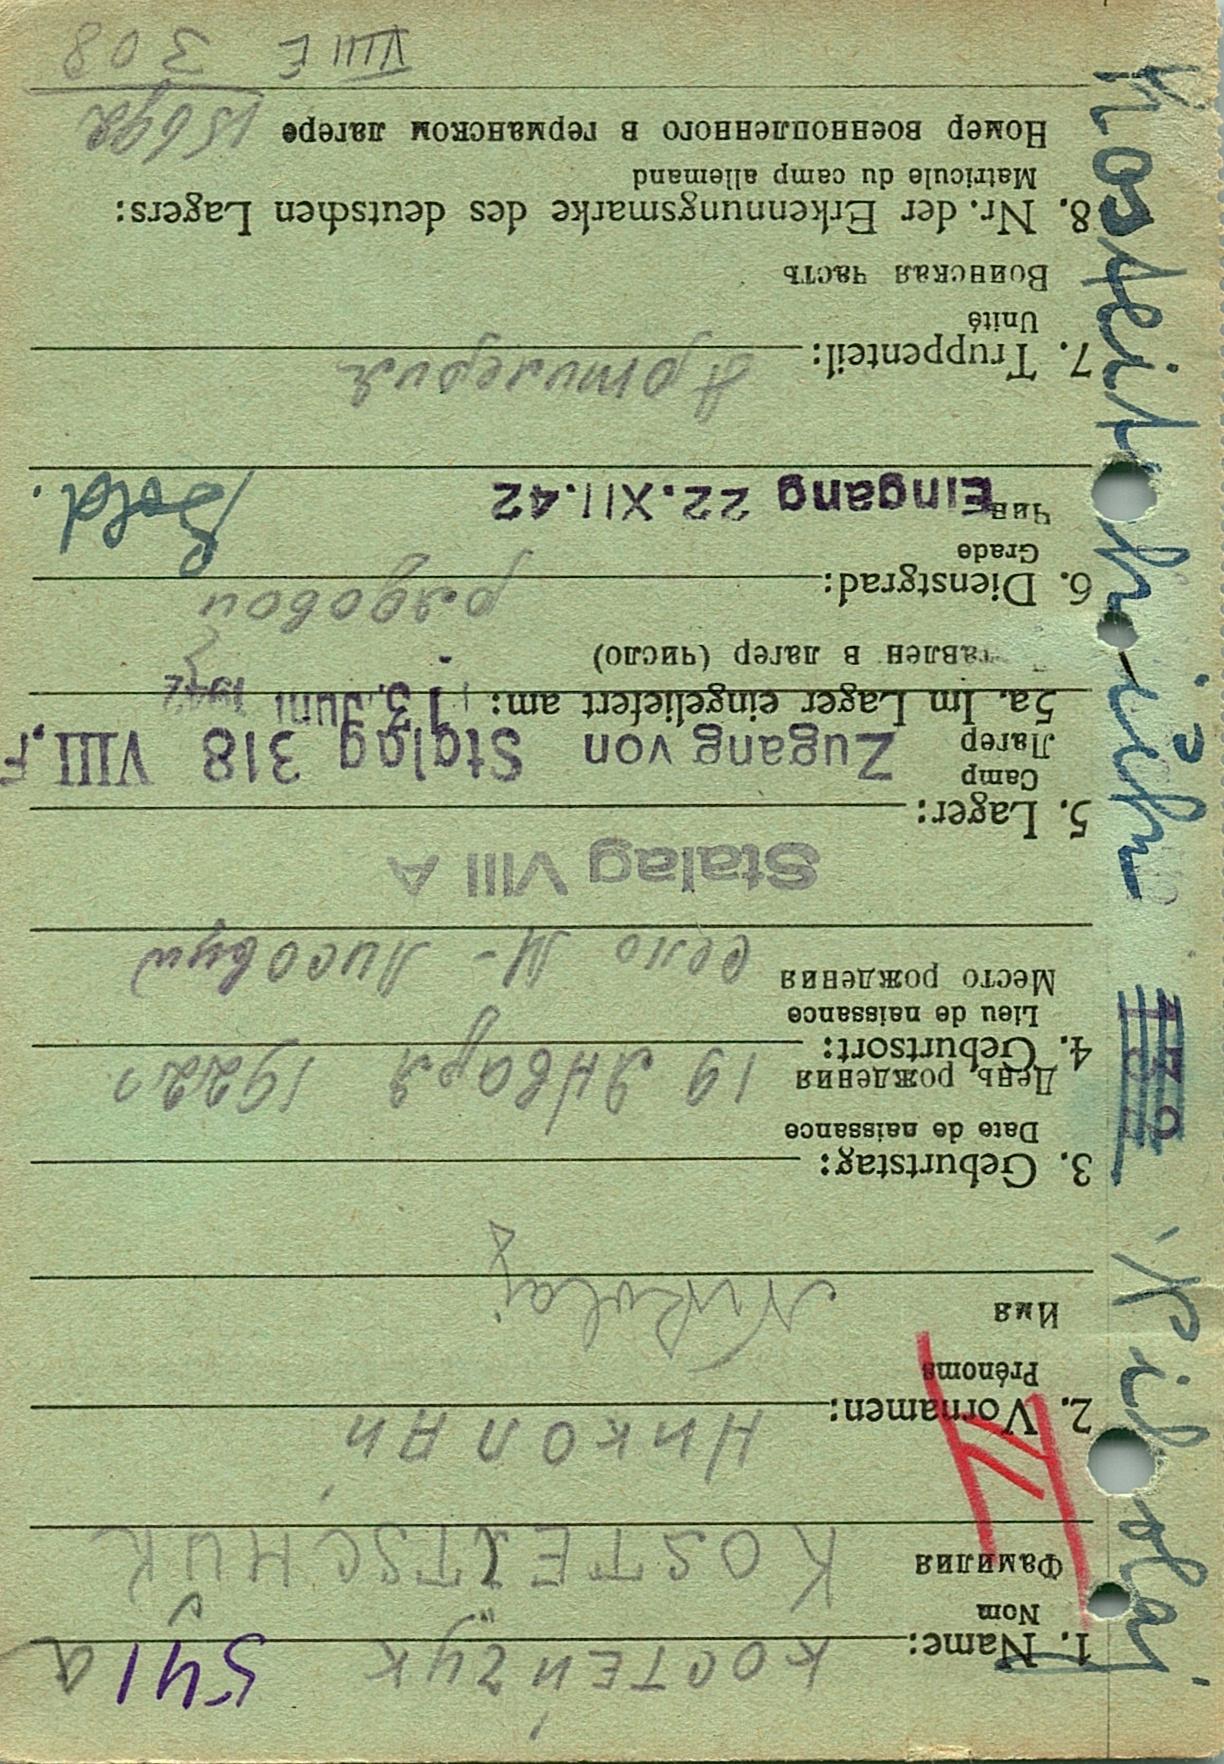 541 a
1. Name: КОСТЕЙЧУК
Nom
Фамилия KOSTEITSCHUK
2. Vornamen: НИКОЛАЙ
Prénoms
Имя Nikolaj
3. Geburtstag:
Date de naissance
День рождения 19 Января 1922 г
4. Geburtsort:
Lieu de naissance
Место рождения село М-
Stalag VIII A
5. Lager:
Camp
Лагер Zugang von Stalag 318 VIII, F
5a. Im Lager eingeliefert am: 13. Juni 1942
тавлен в лагер (число)
6. Dienstgrad: рядовой
Grade
Чин Eingang 22.XII.42 Sold.
7. Truppenteil: Артилерия
Unité
Воинская часть
8. Nr. der Erkennungsmarke des deutschen Lagers:
Matricule du camp allemand
Номер военнопленного в германском лагере 15692
VIII E 308
Nikolaj